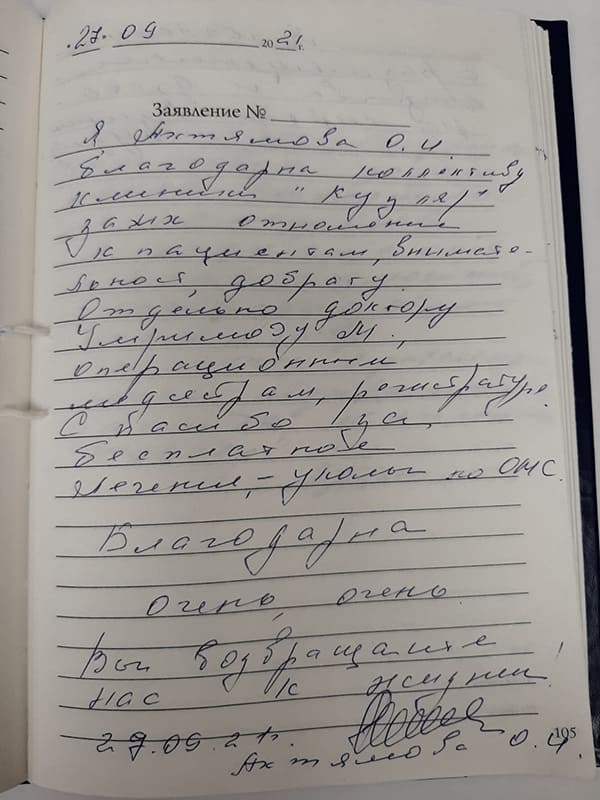 27. 09 2021г.
Заявление №
Я Ахтямова О.И.
благодарна коллективу
клиники "Кузляр"
за их отношение
к пациентам, внимате-
льност, доброту.
Отдельно доктору
М.,
операционным
медсестрам, регистратуре.
Спасибо за
бесплатное
лечения, – уколы по ОМС.
Благодарна
очень, очень.
Вы возвращаете
нас к жизни!
27.09.21г.
Ахтямова О.И.
195